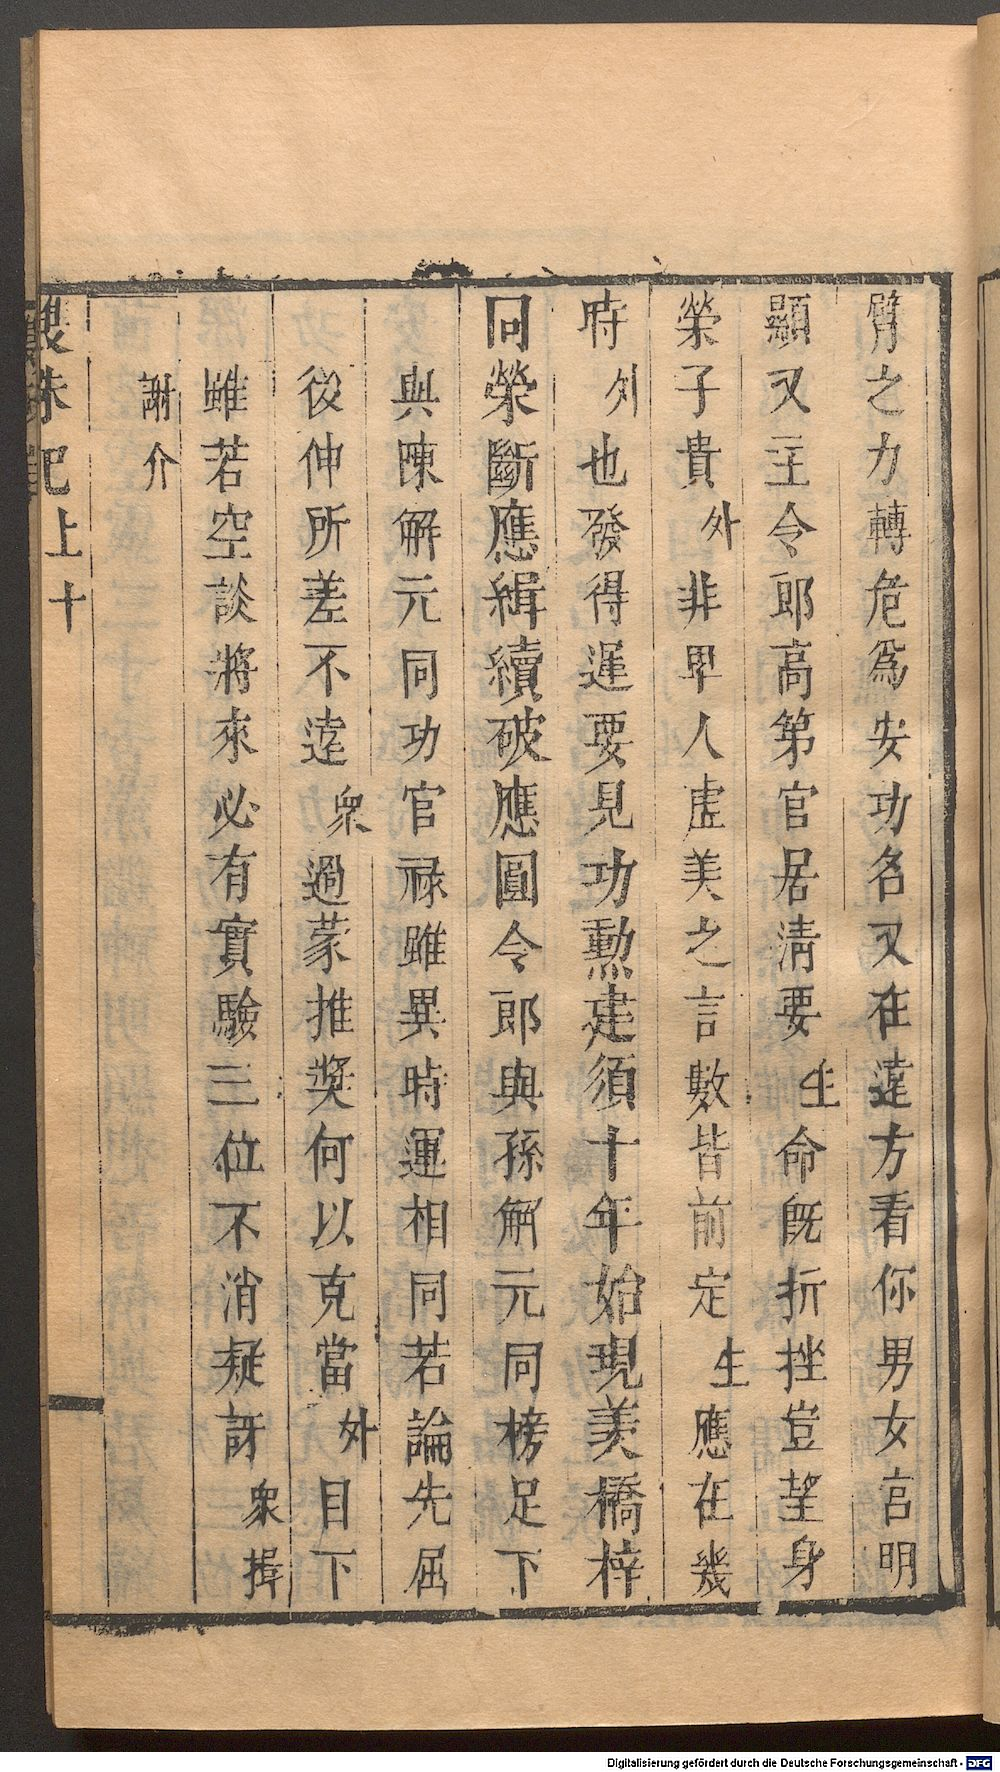 臂之力轉危爲安功名又在遠方看你男女宫明
顯又主令郎高第官居淸要生命旣折挫豈望身
榮子貴外非卑人虛美之言數皆前定生應在幾
時外也發得遲要見功勲建須十年始現羙橋梓
同榮斷應緝續破應圓令郎與孫解元同榜足下
與陳解元同功官祿雖異時運相同若論先屈
後伸所差不遠衆過蒙推奬何以克當外目下
雖若空談將來必有實驗三位不消疑訝衆揖
謝介
雙珠記上十
Digitalisierung gefördert durch die Deutsche Forschungsgemeinschaft - DFG